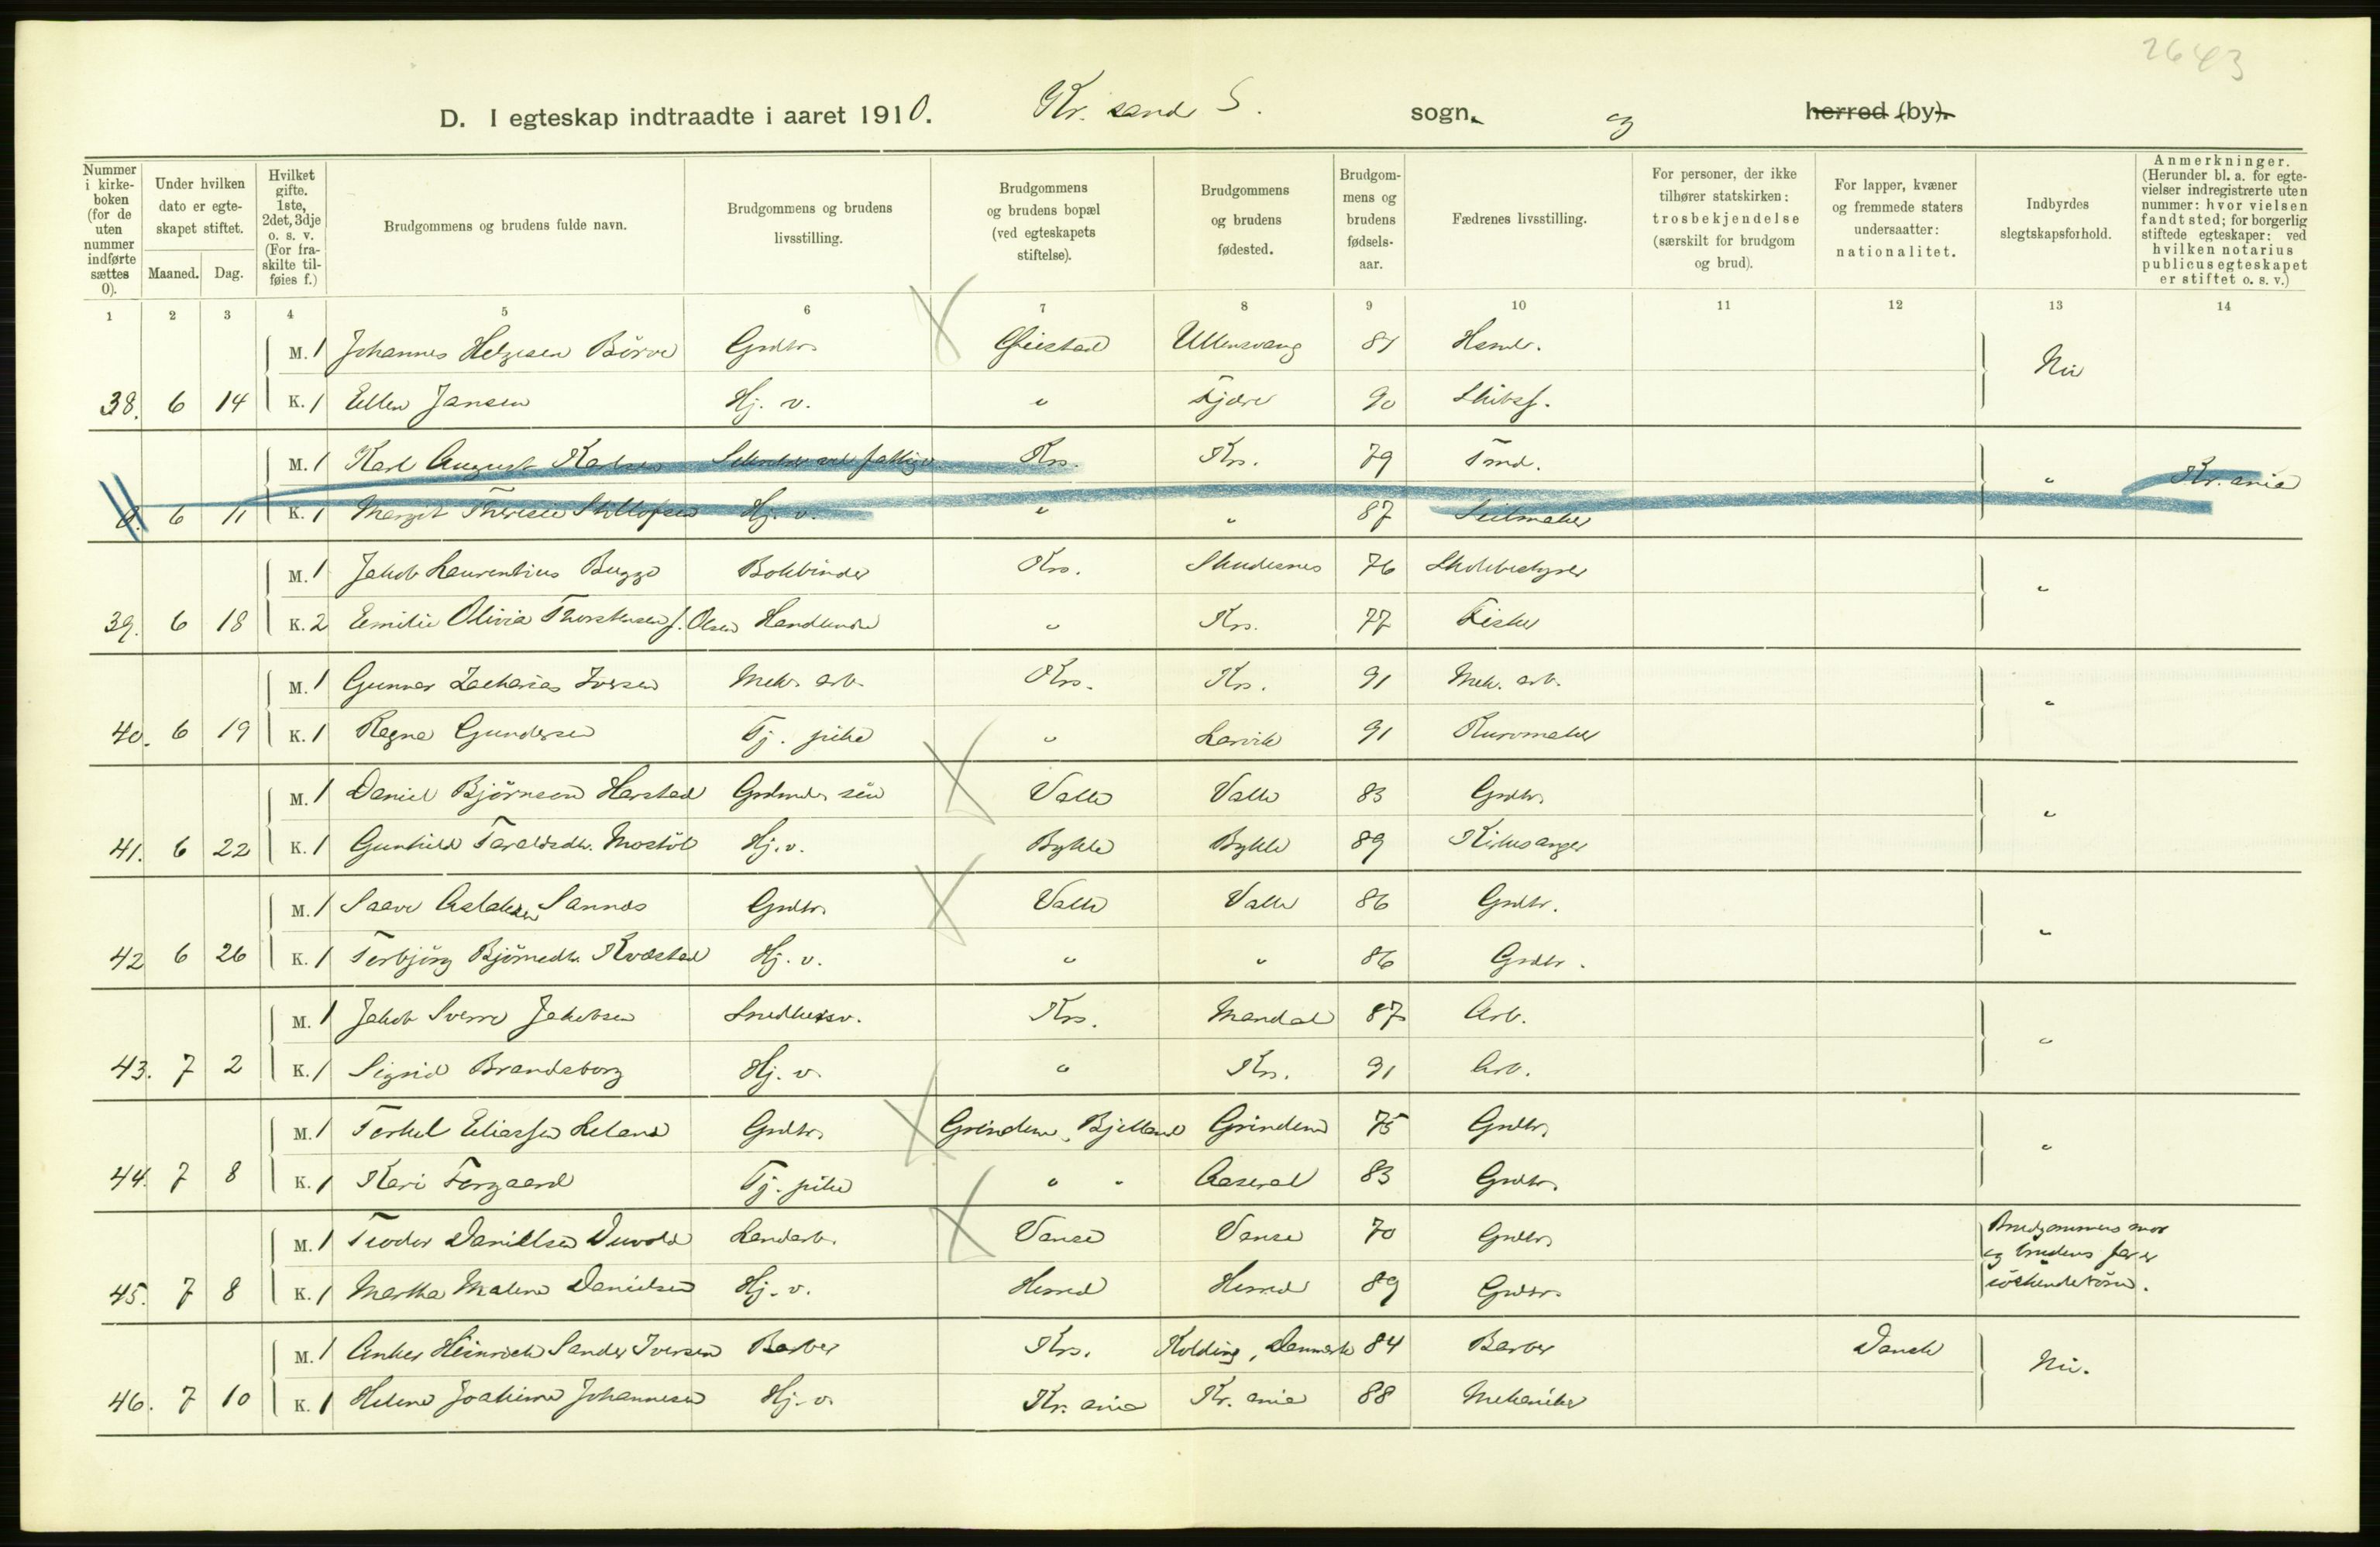 2643
D. I egteskap indtraadte i aaret 1910. Kr. sand S. sogn. og herred (by).
Nummer i kirkeboken (for de uten nummer indførte sættes 0).
Under hvilken dato er egteskapet stiftet.
Maaned. Dag.
Hvilket gifte. 1ste, 2det, 3dje o. s. v. (For fraskilte tilføies f.)
Brudgommens og brudens fulde navn.
Brudgommens og brudens livsstilling.
Brudgommens og brudens bopæl (ved egteskapets stiftelse).
Brudgommens og brudens fødested.
Brudgommens og brudens fødselsaar.
Fædrenes livsstilling.
For personer, der ikke tilhører statskirken: trosbekjendelse (særskilt for brudgom og brud).
For lapper, kvæner og fremmede staters undersaatter: nationalitet.
Indbyrdes slegtskapsforhold.
Anmerkninger. (Herunder bl. a. for egtevielser indregistrerte uten nummer: hvor vielsen fandt sted; for borgerlig stiftede egteskaper: ved hvilken notarius publicus egteskapet er stiftet o. s. v.)
1 2 3 4 5 6 7 8 9 10 11 12 13 14
M. 1 Johannes Helgesen Börve Grdbr. Öiestad Ullensvang 81 Handl. Nei
38. 6 14 K. 1 Ellen Jansen Hj. v. " Fjære 90 Skibsf.
M. 1 Karl August Karlsen Krs. Krs. 79 Tmd. " Kr. ania
0. 6 11 K. 1 Margit Therese Hj. v. " " 87 Seilmaker
M. 1 Jakob Laurentius Bugge Bokbinder Krs. Skudesnes 76 Skolebestyrer "
39. 6 18 K. 2 Emilie Olivia Thorstensen f. Olsen Handlende " Krs. 77 Fisker
M. 1 Gunnar Zacharias Iversen Mek. arb. Krs. Krs. 91 Mek. arb. "
40. 6 19 K. 1 Ragna Gundersen Tj. pike " Larvik 91 Kurvmaker
M. 1 Daniel Björnsen Harstad Grdmds sön Valle Valle 83 Grdbr. "
41. 6 22 K. 1 Gunhild Taraldsdtr. Mostöl Hj. v. Bykle Bykle 89 Kirkesanger
M. 1 Saave Aslaksen Sannes Grdbr. Valle Valle 86 Grdbr. "
42 6 26 K. 1 Torbjörg Björnsdtr. Kvæstad Hj. v. " " 86 Grdbr.
M. 1 Jakob Sverre Jakobsen Snedkersv. Krs. Mandal 87 Arb. "
43. 7 2 K. 1 Sigrid Brandsborg Hj. v. " Krs. 91 Arb.
M. 1 Torkel Eliassen Leland Grdbr. Grindem, Bjelland Grindem 75 Grdbr. "
44. 7 8 K. 1 Kari Torgaard Tj. pike " " Aaseral 83 Grdbr.
M. 1 Teodor Daniellsen Duvold Landarb. Vanse Vanse 70 Grdbr. Brudgommens mor
og brudens far er
45. 7 8 K. 1 Martha Malene Danielsen Hj. v. Herred Herred 89 Grdbr. söskendebörn.
M. 1 Anker Heinrich Sander Iversen Barber Krs. Kolding, Danmark 84 Barber Dansk Nei.
46. 7 10 K. 1 Helene Joakime Johannesen Hj. v. Kr. ania Kr. ania 88 Mekaniker